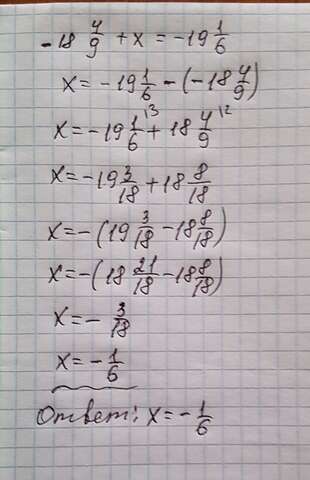 -18 4/9 + x = -19 1/6
x = -19 1/6 - (-18 4/9)
x = -19 1/6^(3 + 18 4/9^(2
x = -19 3/18 + 18 8/18
x = -(19 3/18 - 18 8/18)
x = -(18 21/18 - 18 8/18)
x = - 3/18
x = - 1/6
Ответ: x = - 1/6